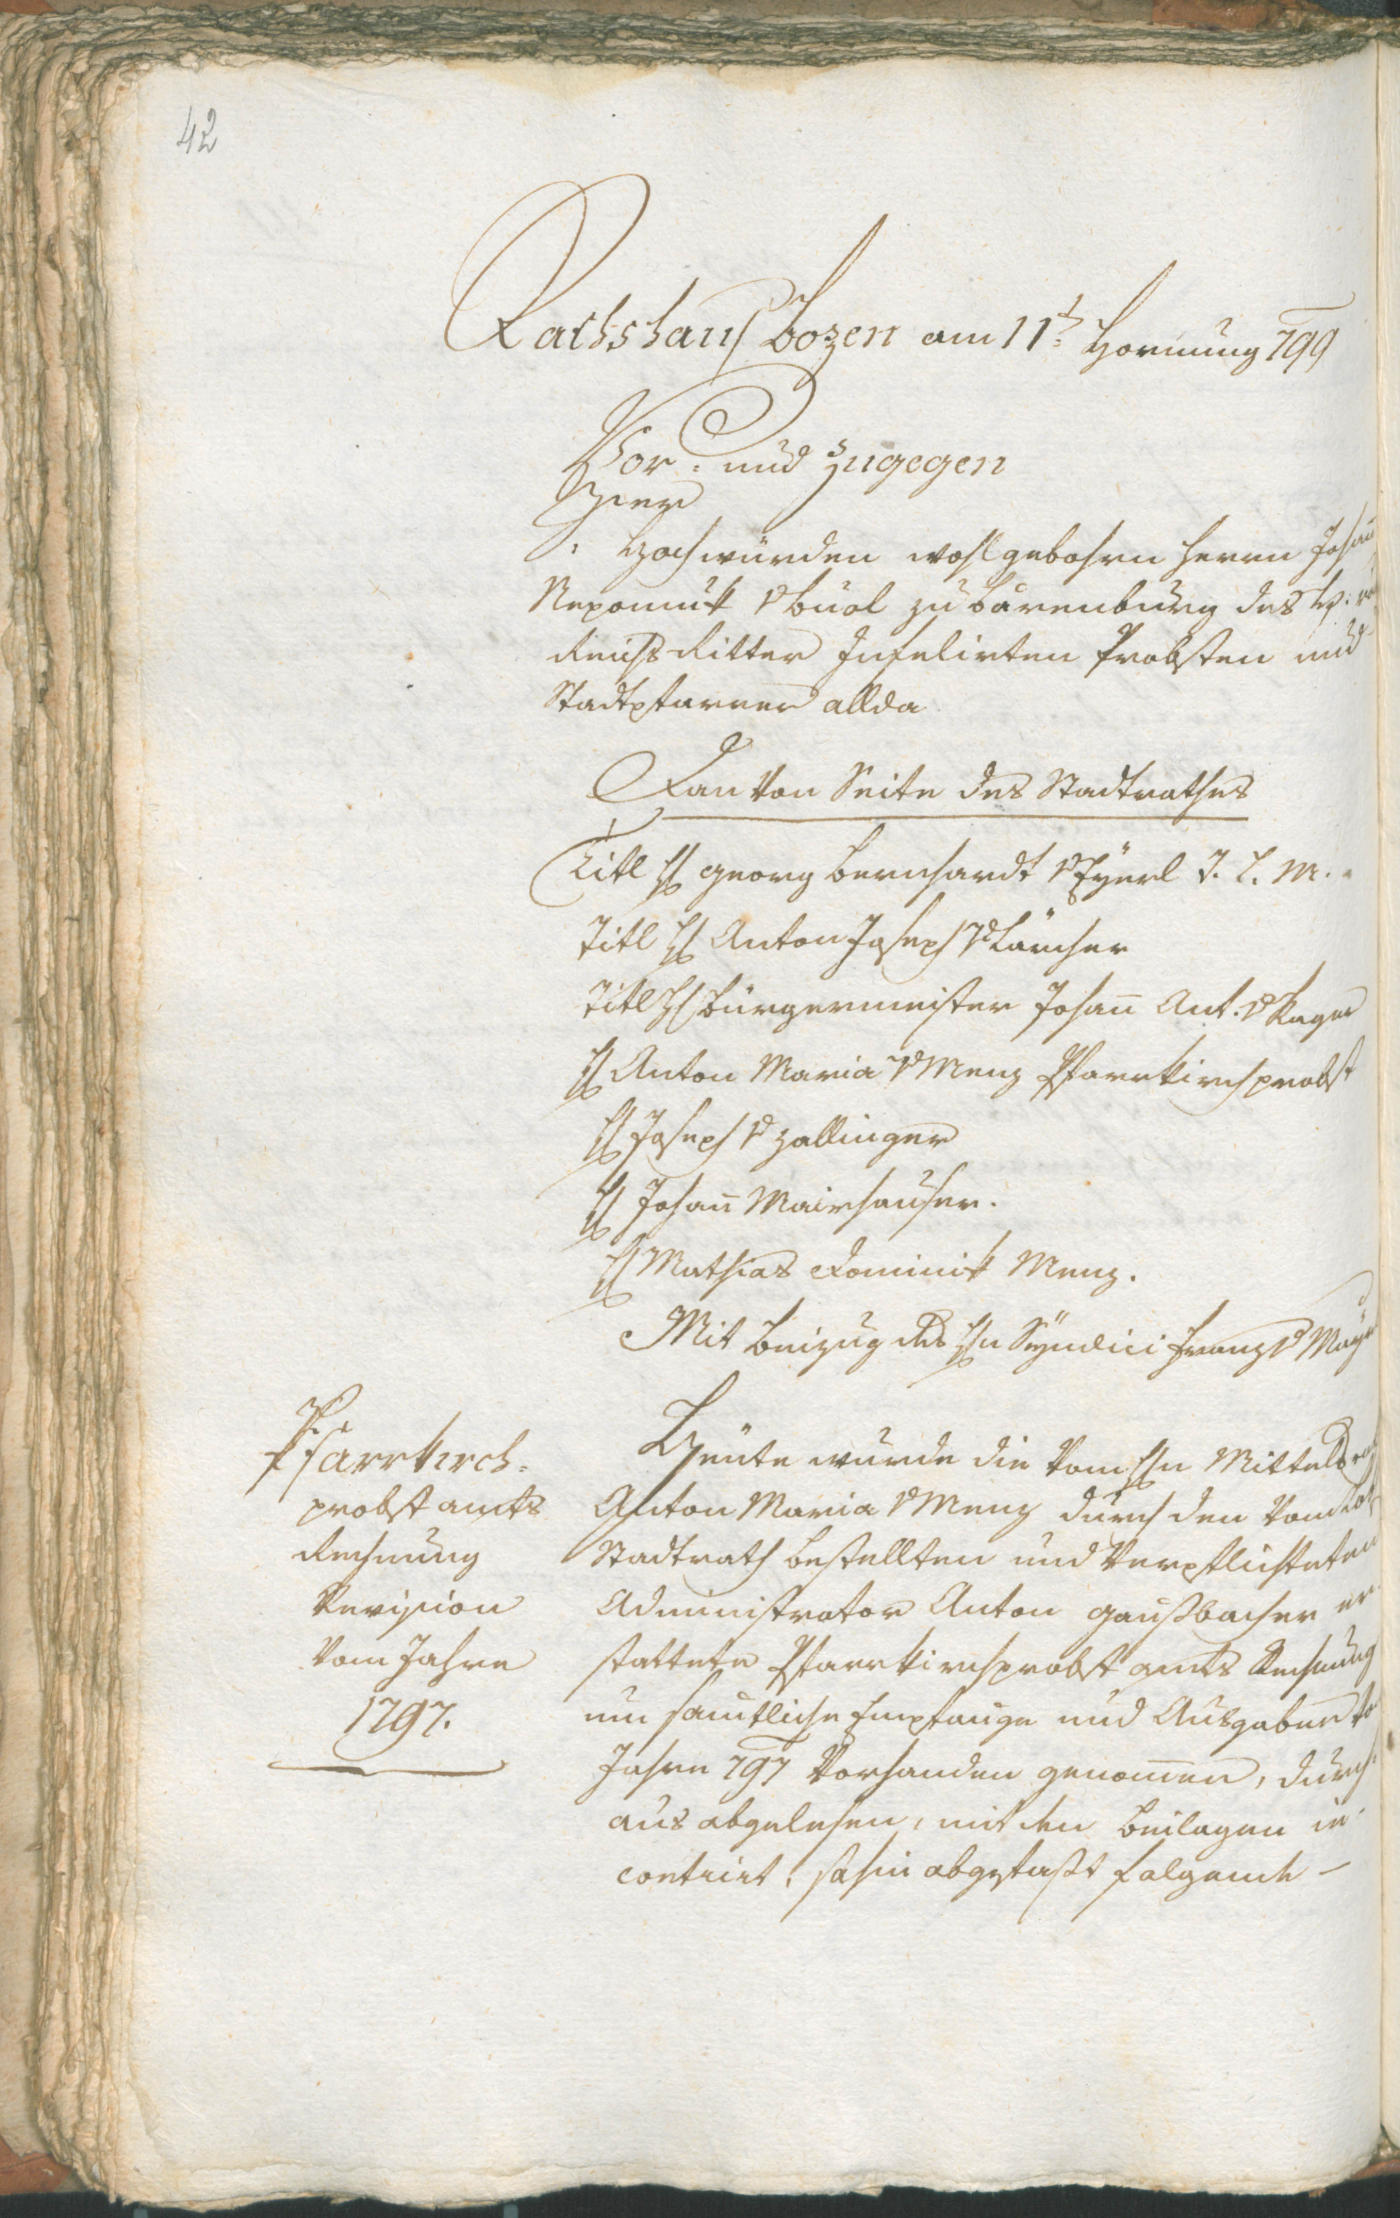 42
Rathshaus Bozen am 11t: Hornung 799
Vor- und zugegen
Hier
Hochwürden wohlgebohrn Herrn Johan
Nepomuk v Buol zu Bärenburg des H: R:
Reichs Ritter Infelirten Probsten und
Stadtpfarrer allda
Dan von Seite des Stadtrathes
Titl H Georg Bernhardt v Eÿerl I. C. M.
Titl H Anton Joseph v Larcher
Titl H Bürgermeister Johan̄ Ant. v Kager
H Anton Maria v Menz Pfarrkirchprobst
H Joseph v Zallinger
H Johan̄ Mairhauser.
H Mathias Dominik Menz.
Mit Beizug des Hn Sÿndici Franz v Maÿr
Pfarrkirch-
probst amts
Rechnung
Revision
vom Jahre
1797.
Heute wurde die vom Hn Mittels
Anton Maria v Menz durch den vom
Stadtrath bestellten und verpflichteten
Administrator Anton Gaußbacher er-
stattete Pfarrkirchprobst amts Rechnung
um samtliche Empfange und Ausgaben
Jahre 797 vorhanden genom̄en, durch-
aus abgelesen, mit den Beilagen in-
contrirt, sohin abgefaßt folgende –